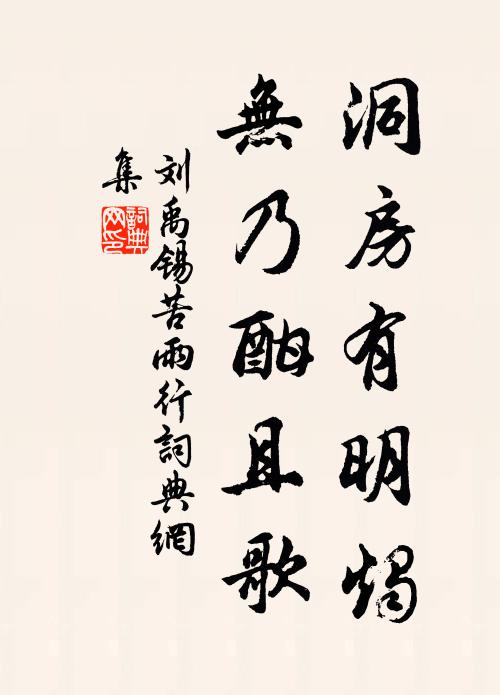 洞房有明燭
無乃酣且歌
刘禹锡苦雨行詞典網
集
詞典网印